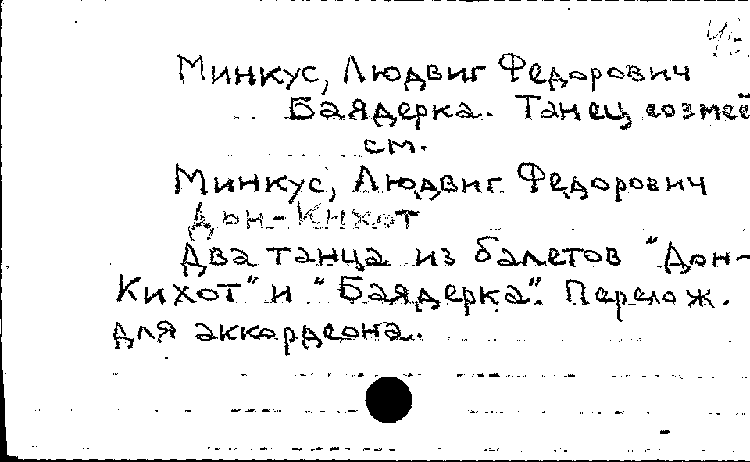 Минкус, Людвиг Федорович
Баядерка. Танец со змеё
см.
Минкус, Людвиг Федорович
Дон-Кихот
Два танца из балетов "Дон-
Кихот" и "Баядерка". Перелож.
для аккордеона.